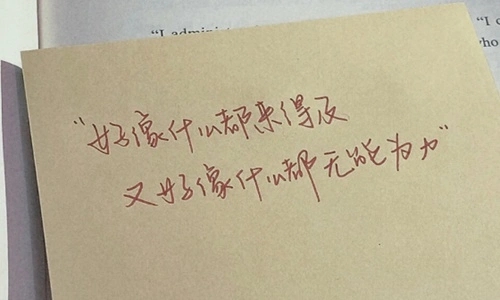 "I admini
"I c
who
"好像什么都来得及
又好像什么都无能为力"